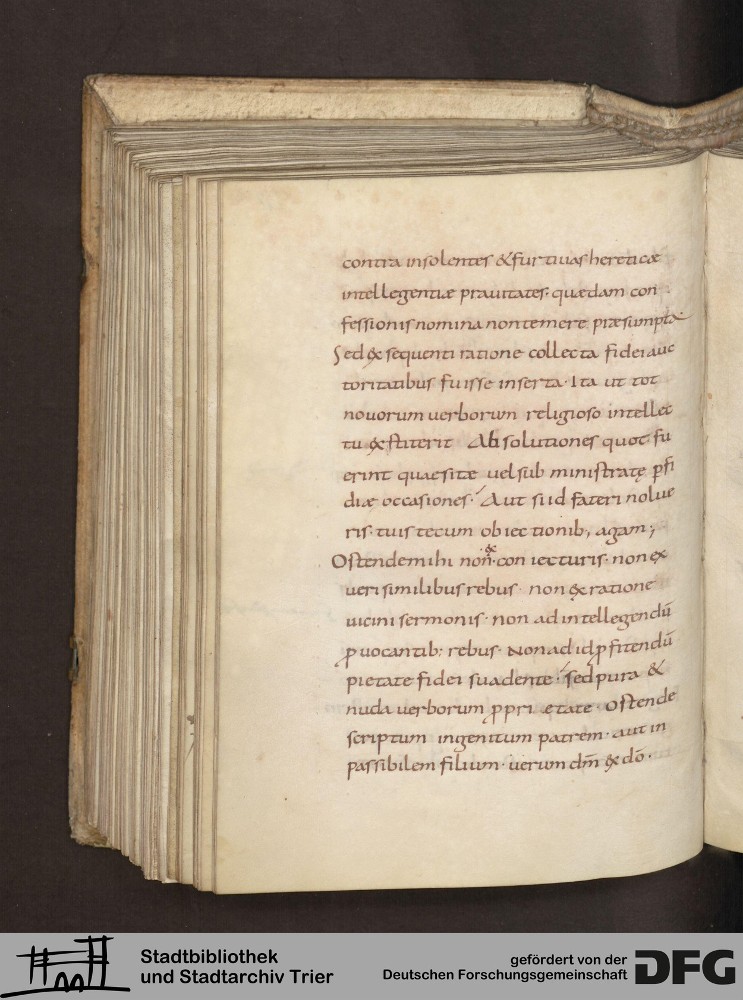 contra insolentes & furtiuas hereticæ
intellegentiæ prauitates· quædam con
fessionis nomina non temere præsumpta
Sed ex sequenti ratione collecta fidei auc
toritatibus fuisse inserta· Ita ut tot
nouorum uerborum religioso intellec
tu extiterit Absolutiones quot fu
erint quaesitæ uel sub ministratę ꝑfi
diæ occasiones· Aut si id fateri nolue
ris· tuis tecum obiectionib; agam;
Ostende mihi non ex coniecturis· non ex
ueri similibus rebus· non ex ratione
uicini sermonis· non ad intellegendū
ꝓuocantib: rebus· Non ad id ꝓfitendū
pietate fidei suadente· sed pura &
nuda uerborum ꝓprietate· Ostende
scriptum ingenitum patrem· aut in
passibilem filium· uerum dm̄ ex dō·
Stadtbibliothek
und Stadtarchiv Trier
gefördert von der
Deutschen Forschungsgemeinschaft
DFG